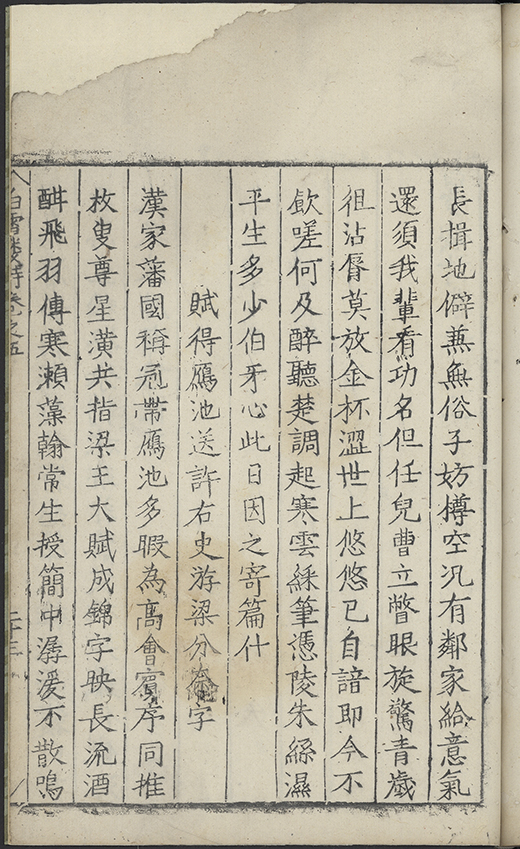 長揖地僻兼無俗子妨樽空況有鄰家給意氣
還須我輩看功名但任兒曹立瞥眼旋驚青歲
徂沾脣莫放金杯澀世上悠悠已自諳即今不
飲嗟何及醉聽楚調起寒雲綵筆憑陵朱絲濕
平生多少伯牙心此日因之寄篇什
賦得鴈池送許右史游梁分字
漢家藩國稱冠帶鴈池多暇為高會賓序同推
枚叟尊星潢共指梁王大賦成錦字映長流酒
酣飛羽傳寒瀨藻翰常生授簡中潺湲不散鳴
白雪樓詩卷之五
二十三